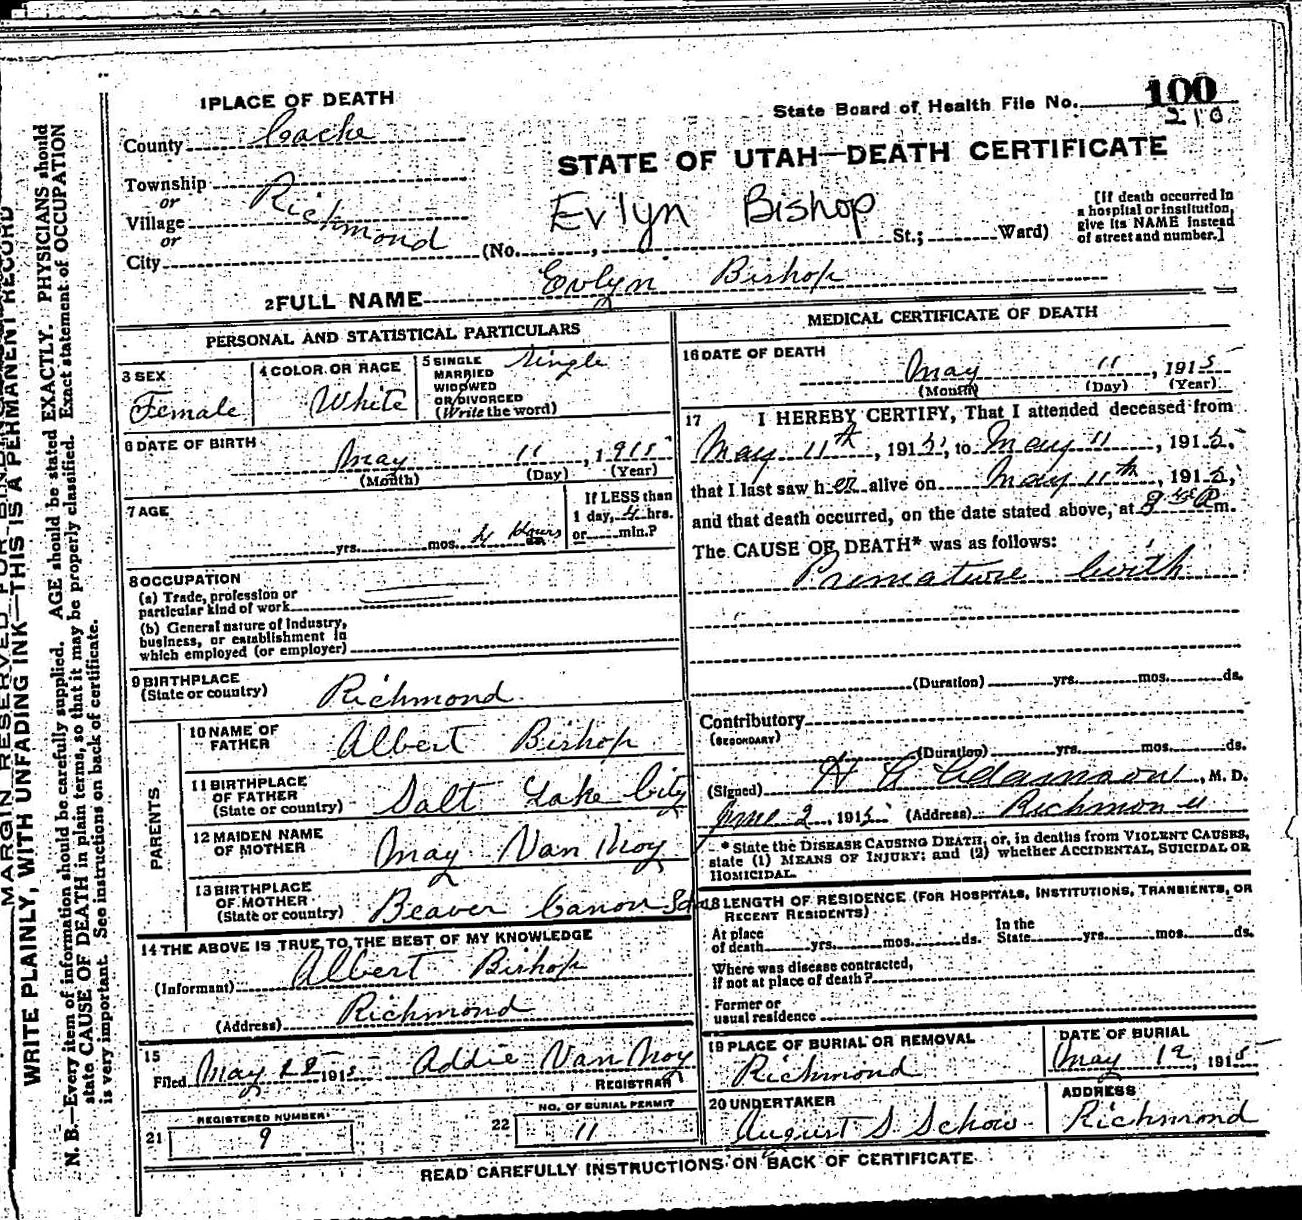 1 PLACE OF DEATH
State Board of Health File No. 100
210
County Cache
STATE OF UTAH—DEATH CERTIFICATE
Township
or
Village Richmond
or
City
Evlyn Bishop
(No. , St.; Ward)
[If death occurred in
a hospital or institution,
give its NAME instead
of street and number.]
2 FULL NAME Evlyn Bishop
PERSONAL AND STATISTICAL PARTICULARS
3 SEX
Female
4 COLOR OR RACE
White
5 SINGLE
MARRIED
WIDOWED
OR DIVORCED
(Write the word)
Single
6 DATE OF BIRTH
May 11, 1915
(Month) (Day) (Year)
7 AGE
yrs. mos. 4 Hours
If LESS than
1 day, 4 hrs.
or min.?
8 OCCUPATION
(a) Trade, profession or
particular kind of work
(b) General nature of industry,
business, or establishment in
which employed (or employer)
9 BIRTHPLACE
(State or country) Richmond
PARENTS
10 NAME OF
FATHER Albert Bishop
11 BIRTHPLACE
OF FATHER
(State or country) Salt Lake City
12 MAIDEN NAME
OF MOTHER May Van Noy
13 BIRTHPLACE
OF MOTHER
(State or country) Beaver Canon
14 THE ABOVE IS TRUE TO THE BEST OF MY KNOWLEDGE
(Informant) Albert Bishop
(Address) Richmond
15
Filed May 22 1915 Addie Van Noy
REGISTRAR
21 REGISTERED NUMBER
9
22 NO. OF BURIAL PERMIT
11
MEDICAL CERTIFICATE OF DEATH
16 DATE OF DEATH
May 11, 1915
(Month) (Day) (Year)
17 I HEREBY CERTIFY, That I attended deceased from
May 11th, 1915, to May 11, 1915,
that I last saw her alive on May 11th, 1915,
and that death occurred, on the date stated above, at P m.
The CAUSE OF DEATH* was as follows:
Premature birth
(Duration) yrs. mos. ds.
Contributory
(SECONDARY)
(Duration) yrs. mos. ds.
(Signed) Adamson, M. D.
June 2, 1915 (Address) Richmond
* State the DISEASE CAUSING DEATH, or, in deaths from VIOLENT CAUSES,
state (1) MEANS OF INJURY; and (2) whether ACCIDENTAL, SUICIDAL OR
HOMICIDAL.
18 LENGTH OF RESIDENCE (FOR HOSPITALS, INSTITUTIONS, TRANSIENTS, OR
RECENT RESIDENTS)
At place
of death yrs. mos. ds.
In the
State yrs. mos. ds.
Where was disease contracted,
if not at place of death?
Former or
usual residence
19 PLACE OF BURIAL OR REMOVAL
Richmond
DATE OF BURIAL
May 12, 1915
20 UNDERTAKER
August S Schow
ADDRESS
Richmond
READ CAREFULLY INSTRUCTIONS ON BACK OF CERTIFICATE
MARGIN RESERVED FOR BINDING
WRITE PLAINLY, WITH UNFADING INK—THIS IS A PERMANENT RECORD
N. B.—Every item of information should be carefully supplied. AGE should be stated EXACTLY. PHYSICIANS should
state CAUSE OF DEATH in plain terms, so that it may be properly classified. Exact statement of OCCUPATION
is very important. See instructions on back of certificate.